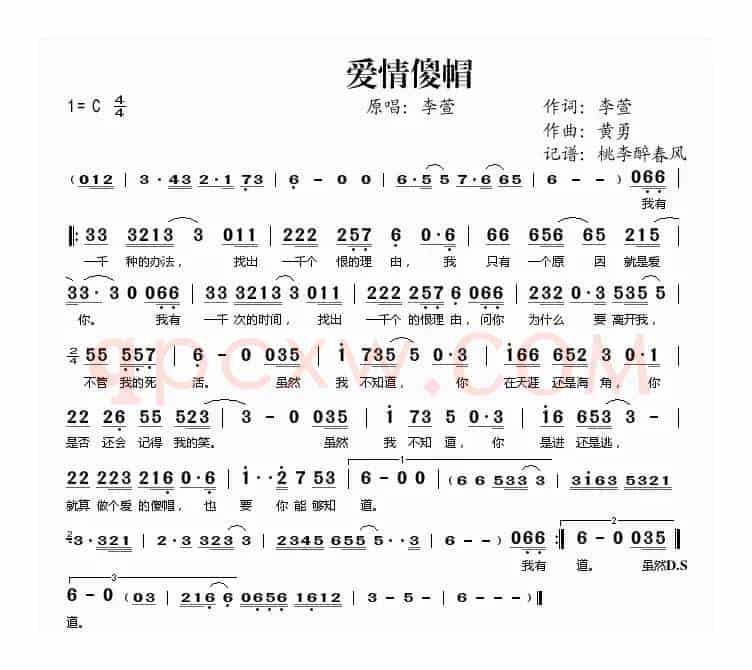 爱情傻帽
1= C 4/4 原唱：李萱 作词：李萱
作曲：黄勇
记谱：桃李醉春风
( 0 1 2 | 3 · 4 3 2 · 1 7 3 | 6 - 0 0 | 6 · 5 5 7 · 6 6 5 | 6 - - ) 0 6 6 |
我有
‖: 3 3 3 2 1 3 3 0 1 1 | 2 2 2 2 5 7 6 0 · 6 | 6 6 6 5 6 6 5 2 1 5 |
一千 种的办法， 找出 一千个 恨的理 由， 我 只有 一个原 因 就是爱
3 3 · 3 0 0 6 6 | 3 3 3 2 1 3 3 0 1 1 | 2 2 2 2 5 7 6 0 6 6 | 2 3 2 0 · 3 5 3 5 5 |
你。 我有 一千 次的时间， 找出 一千个 的恨理 由，问你 为什么 要 离开我，
2/4 5 5 5 5 7 | 6 - 0 0 3 5 | i 7 3 5 5 0 · 3 | i 6 6 6 5 2 3 0 · 1 |
不管 我的死 活。 虽然 我 不知道， 你 在天涯 还是海 角，你
2 2 2 6 5 5 5 2 3 | 3 - 0 0 3 5 | i 7 3 5 0 · 3 | i 6 6 5 3 3 - |
是否 还会 记得 我的笑。 虽然 我 不知 道， 你 是进 还是逃，
2 2 2 2 3 2 1 6 0 · 6 | i · · 2 7 5 3 | 1 6 - 0 - | ( 6 6 5 3 3 3 | 3 i 6 3 5 3 2 1
就算 做个爱 的傻帽， 也 要 你 能够知 道。
2/4 3 · 3 2 1 | 2 · 3 3 2 3 3 | 2 3 4 5 6 5 5 5 · · 3 | 6 - - ) 0 6 6 :‖ 2 6 - 0 0 3 5 ‖
我有 道。 虽然D.S
3
6 - 0 ( 0 3 | 2 1 6 6 0 6 5 6 1 6 1 2 | 3 - 5 - | 6 - - - ) ‖
道。
qpcxw.COM